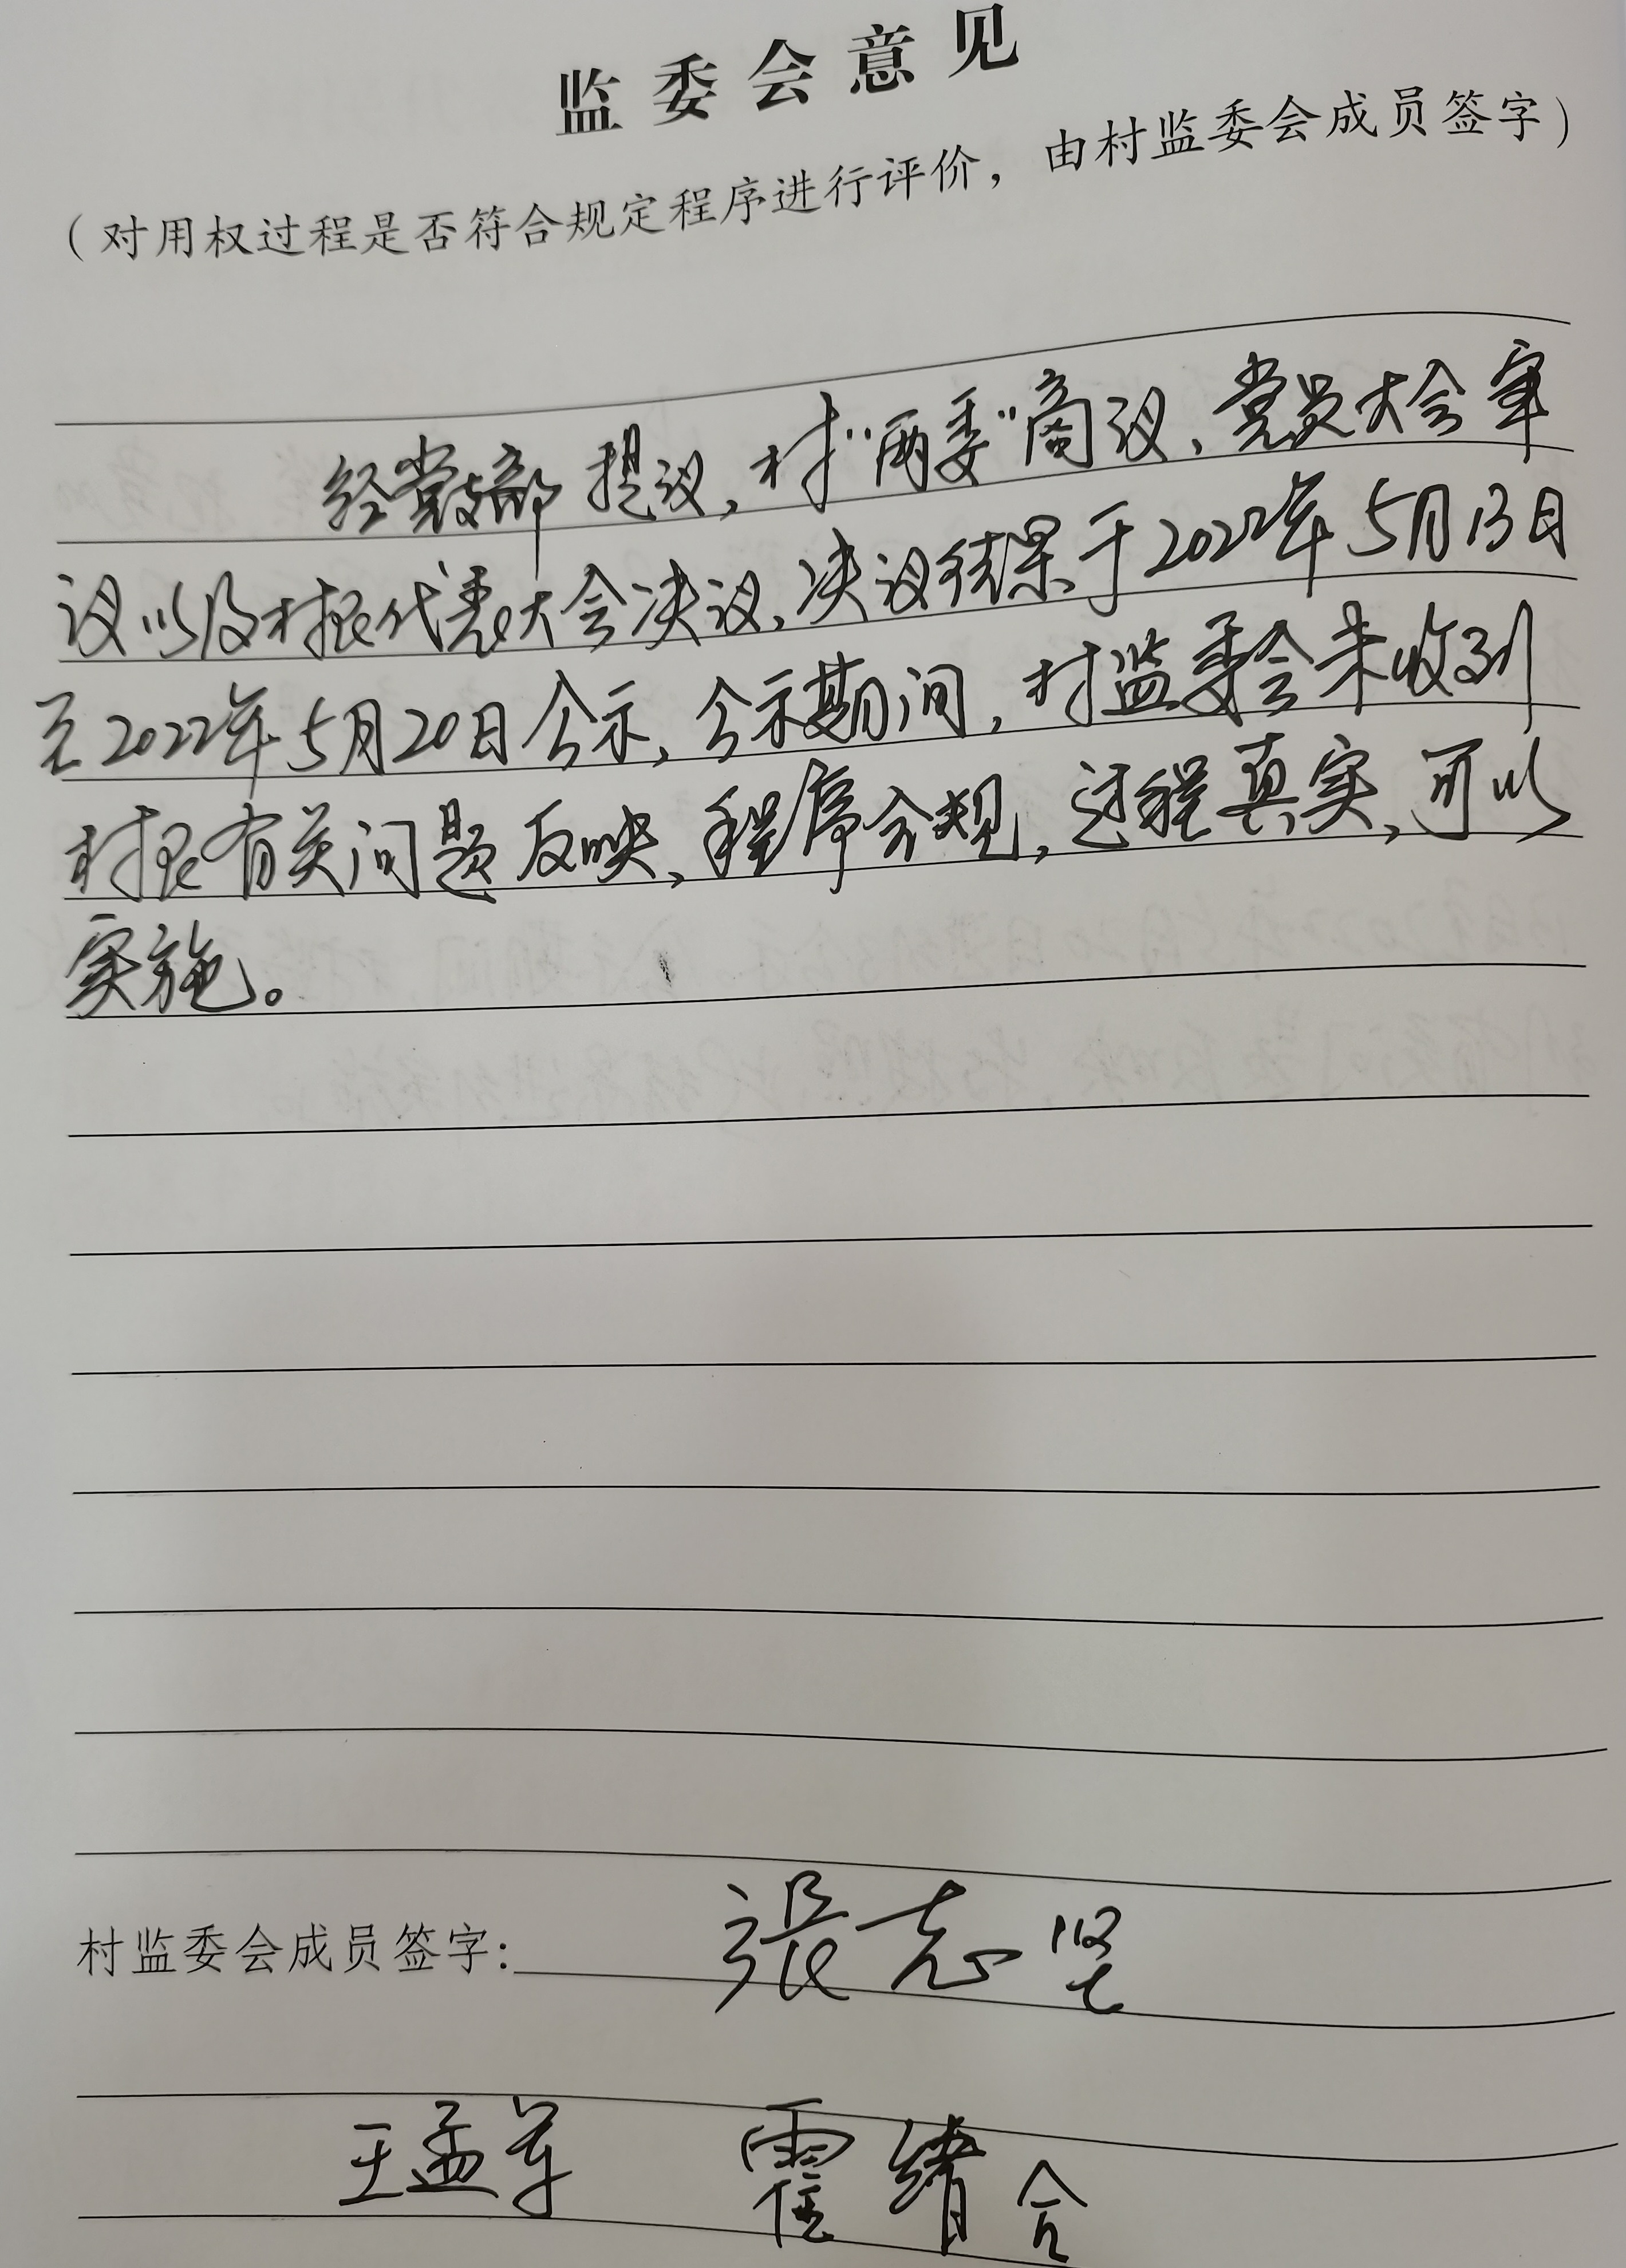 监委会意见
（对用权过程是否符合规定程序进行评价，由村监委会成员签字）
经党支部提议，村“两委”商议、党员大会审
议以及村民代表大会决议，决议结果于2022年5月13日
至2022年5月20日公示，公示期间，村监委会未收到
村民有关问题反映，程序合规，过程真实，可以
实施。
村监委会成员签字：张志坚
王孟军 霍绪合